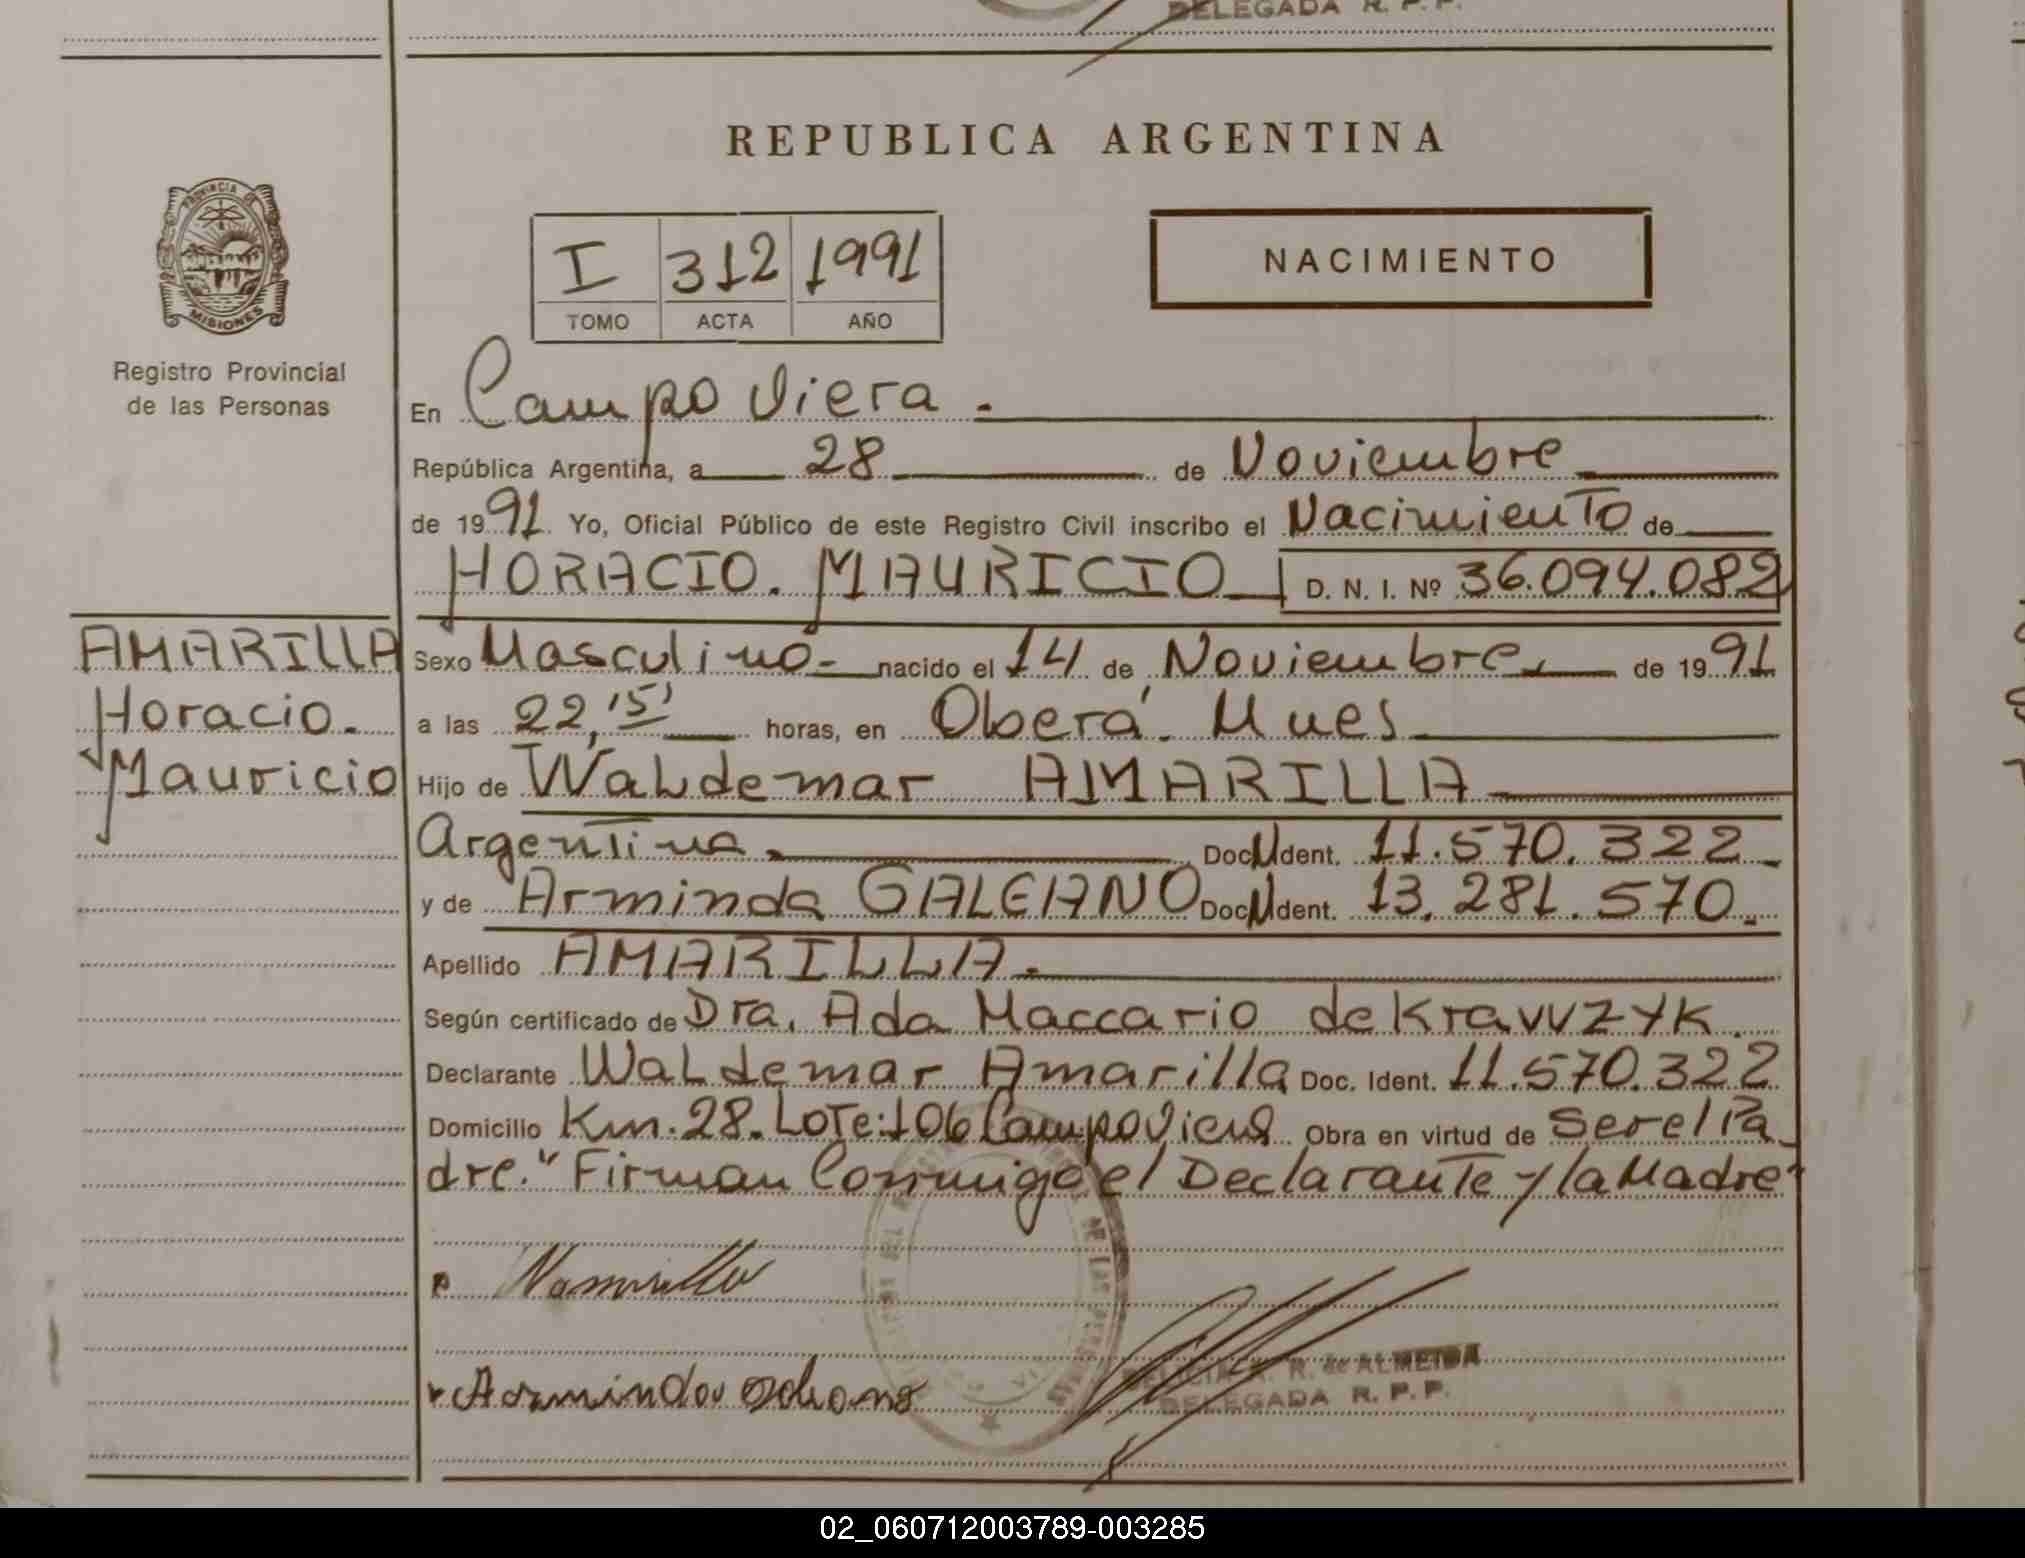 DELEGADA R. P. P.
REPUBLICA ARGENTINA
PROVINCIA DE
MISIONES
Registro Provincial
de las Personas
I 312 1991
TOMO ACTA AÑO
NACIMIENTO
En Campo Viera.
República Argentina, a 28 de Noviembre
de 1991. Yo, Oficial Público de este Registro Civil inscribo el Nacimiento de
HORACIO. MAURICIO D. N. I. Nº 36.094.082
AMARILLA
Horacio.
Mauricio
Sexo Masculino- nacido el 14 de Noviembre. de 1991
a las 22,15' horas, en Oberá. Mnes
Hijo de Waldemar AMARILLA
Argentina. Doc. Ident. 11.570.322
y de Arminda GALEANO Doc. Ident. 13.281.570.
Apellido AMARILLA.
Según certificado de Dra. Ada Maccario de Kravvzyk.
Declarante Waldemar Amarilla Doc. Ident. 11.570.322
Domicilio Km.28. Lote:106 Campo Viera Obra en virtud de Ser el Pa
dre." Firman Conmigo el Declarante y la Madre"
Wamarilla
Arminda
R. de ALMEIDA
DELEGADA R. P. P.
DE LAS
02_060712003789-003285